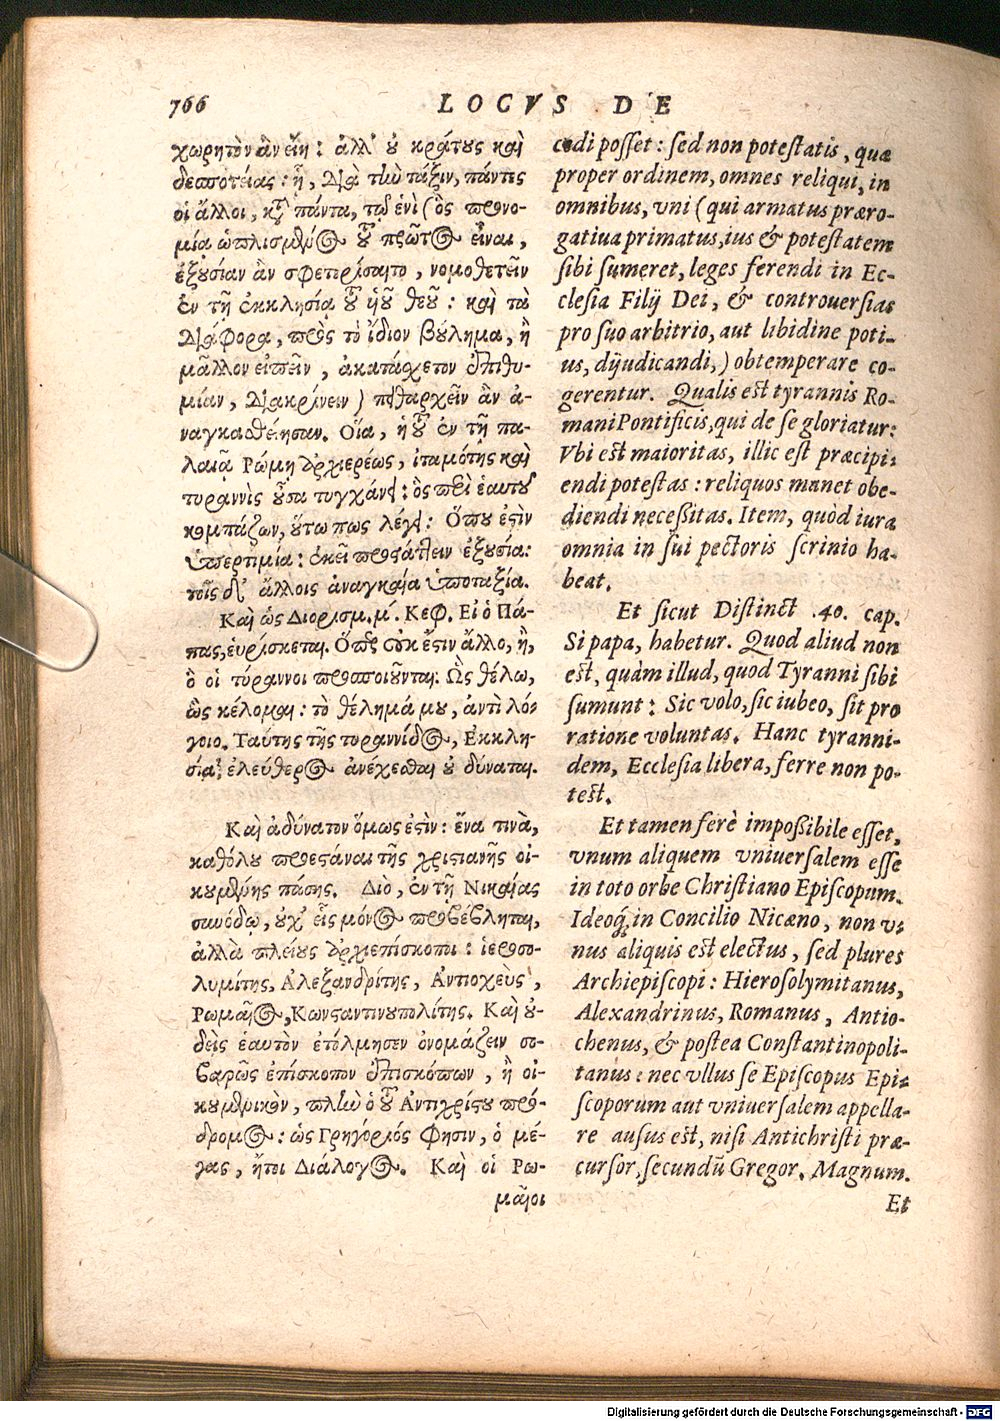 766 LOCVS DE
χωρητὸν ἂν εἴη: ἀλλ' οὐ κράτους καὶ
δεσποτείας: ᾗ, διὰ τὴν τάξιν, πάντες
οἱ ἄλλοι, κατὰ πάντα, τῷ ἑνὶ (ὃς προνο-
μία ὡπλισμένος τοῦ πρῶτος εἶναι,
ἐξουσίαν ἂν σφετερίσαιτο, νομοθετεῖν
ἐν τῇ ἐκκλησίᾳ τοῦ υἱοῦ θεοῦ: καὶ τὰ
διάφορα, πρὸς τὸ ἴδιον βούλημα, ἢ
μᾶλλον εἰπεῖν, ἀκατάχετον ἐπιθυ-
μίαν, διακρίνειν) πειθαρχεῖν ἂν ἀ-
ναγκασθείησαν. Οἵα, ἡ τοῦ ἐν τῇ πα-
λαιᾷ Ρώμῃ ἀρχιερέως, ἰταμότης καὶ
τυραννὶς οὖσα τυγχάνει: ὃς περὶ ἑαυτοῦ
κομπάζων, οὕτω πως λέγει: Ὅπου ἐστὶν
ὑπερτιμία: ἐκεῖ προστάττειν ἐξουσία:
τοῖς δὲ ἄλλοις ἀναγκαία ὑποταξία.
Καὶ ὡς Διορισμ. μ΄. Κεφ. Εἰ ὁ Πά-
πας, εὑρίσκεται. Ὅπερ οὐκ ἔστιν ἄλλο, ἢ,
ὃ οἱ τύραννοι προσποιοῦνται. Ὡς θέλω,
ὣς κέλομαι: τὸ θέλημά μου, ἀντὶ λό-
γοιο. Ταύτης τῆς τυραννίδος, Ἐκκλη-
σία ἐλεύθερος ἀνέχεσθαι οὐ δύναται.
Καὶ ἀδύνατον ὅμως ἐστὶν: ἕνα τινὰ,
καθόλου προεστάναι τῆς χριστιανῆς οἰ-
κουμένης πάσης. Διὸ, ἐν τῇ Νικαίας
συνόδῳ, οὐχ εἷς μόνος προβέβληται,
ἀλλὰ πλείους ἀρχιεπίσκοποι: ἱεροσο-
λυμίτης, Ἀλεξανδρίτης, Ἀντιοχεὺς,
Ρωμαῖος, Κωνσταντινουπολίτης. Καὶ οὐ-
δεὶς ἑαυτὸν ἐτόλμησεν ὀνομάζειν σο-
βαρῶς ἐπίσκοπον ἐπισκόπων, ἢ οἰ-
κουμενικὸν, πλὴν ὁ τοῦ Ἀντιχρίστου πρό-
δρομος: ὡς Γρηγόριός φησιν, ὁ μέ-
γας, ἤτοι Διάλογος. Καὶ οἱ Ρω-
μαῖοι
cedi posset: sed non potestatis, quæ
proper ordinem, omnes reliqui, in
omnibus, vni (qui armatus præro-
gatiua primatus, ius & potestatem
sibi sumeret, leges ferendi in Ec-
clesia Filij Dei, & controuersias
pro suo arbitrio, aut libidine poti-
us, dijudicandi,) obtemperare co-
gerentur. Qualis est tyrannis Ro-
mani Pontificis, qui de se gloriatur:
Vbi est maioritas, illic est præcipi-
endi potestas: reliquos manet obe-
diendi necessitas. Item, quòd iura
omnia in sui pectoris scrinio ha-
beat.
Et sicut Distinct .40. cap.
Si papa, habetur. Quod aliud non
est, quàm illud, quod Tyranni sibi
sumunt: Sic volo, sic iubeo, sit pro
ratione voluntas. Hanc tyranni-
dem, Ecclesia libera, ferre non po-
test.
Et tamen ferè impoßibile esset,
vnum aliquem vniuersalem esse
in toto orbe Christiano Episcopum.
Ideoq́; in Concilio Nicæno, non v-
nus aliquis est electus, sed plures
Archiepiscopi: Hierosolymitanus,
Alexandrinus, Romanus, Antio-
chenus, & postea Constantinopoli-
tanus: nec vllus se Episcopus Epi-
scoporum aut vniuersalem appella-
re ausus est, nisi Antichristi præ-
cursor, secundū Gregor. Magnum.
Et
Digitalisierung gefördert durch die Deutsche Forschungsgemeinschaft - DFG